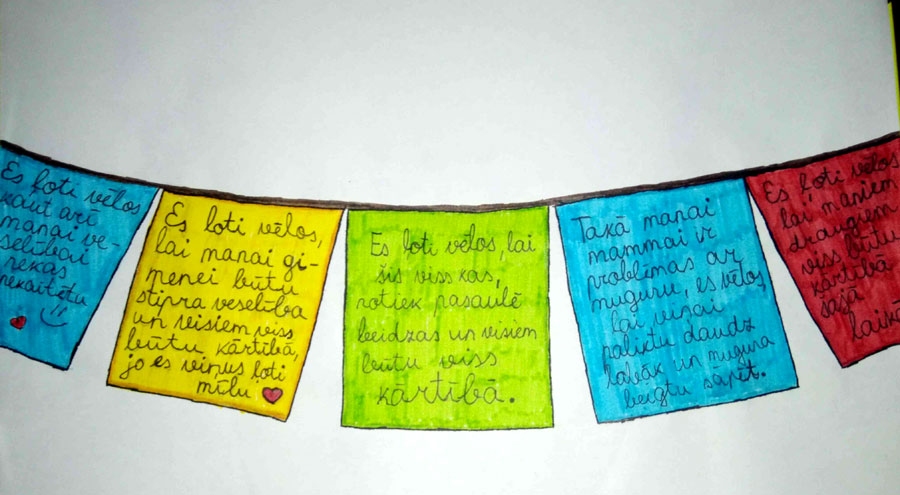 Es ļoti vēlos
kaut arī
manai ve-
selībai
nekas
nekaitētu
Es ļoti vēlos,
lai manai ģi-
menei būtu
stipra veselība
un visiem viss
būtu kārtībā,
jo es viņus ļoti
mīlu
Es ļoti vēlos, lai
šis viss kas,
notiek pasaulē
beidzas un visiem
būtu viss
kārtībā.
Tākā manai
mammai ir
problēmas ar
muguru, es vēlos,
lai viņai
paliktu daudz
labāk un mugura
beigtu sāpēt.
Es ļoti vēlos
lai maniem
draugiem
viss būtu
kārtībā
šajā
laikā